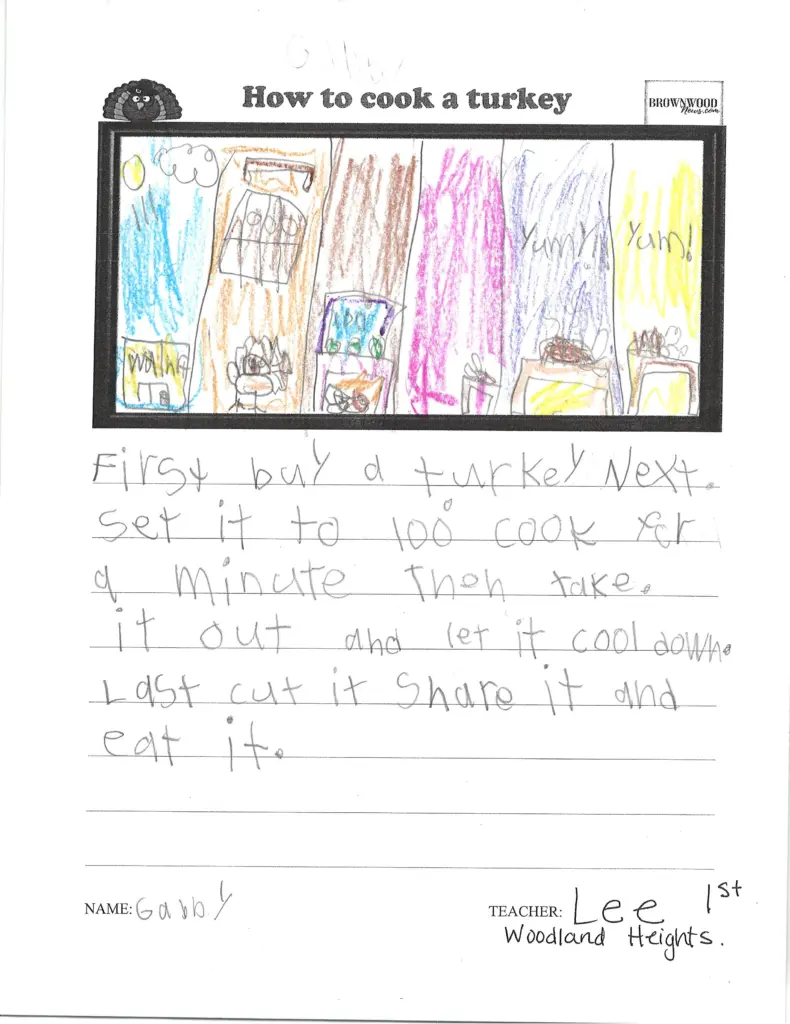 How to cook a turkey
BROWNWOOD
News.com
Yum!
First buy a turkey Next.
set it to 100° cook for
a minute then take.
it out and let it cool down.
Last cut it share it and
eat it.
NAME: Gabby
TEACHER: Lee 1st
Woodland Heights.